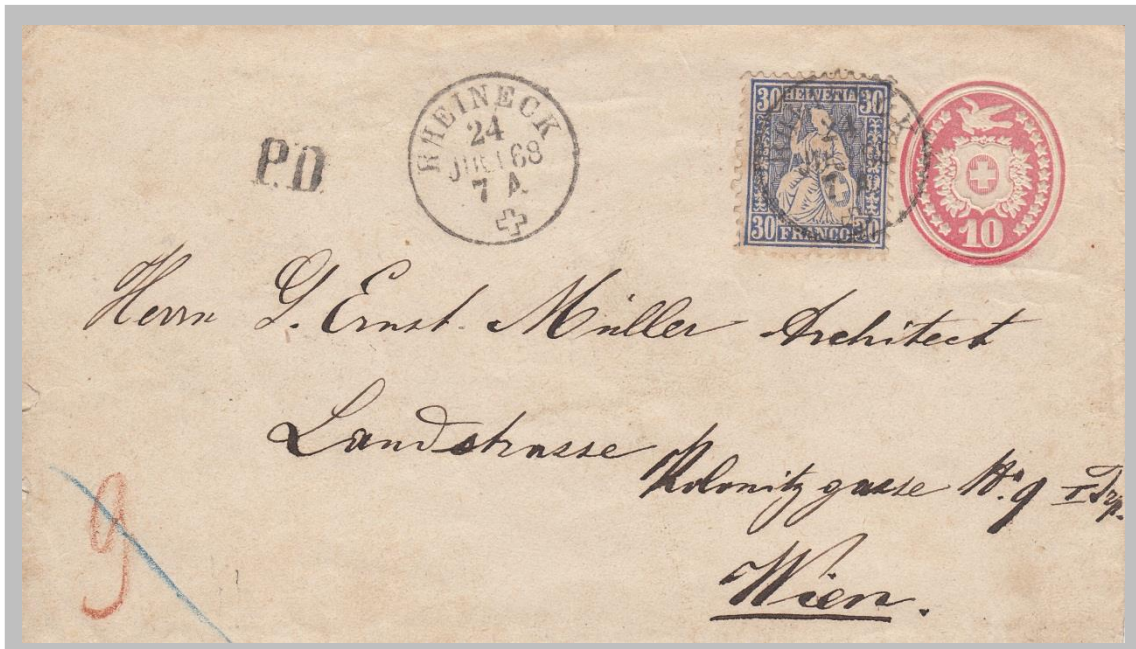 P.D.
RHEINECK
24
68
7 A
30 HELVETIA 30
24
7 A
30 FRANCO 30
10
Herrn G. Ernst Müller Architect
Landstrasse
Kolonitzgasse No. 9 I Trp.
Wien.
9